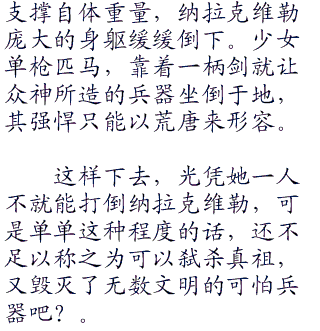 支撑自体重量，纳拉克维勒
庞大的身躯缓缓倒下。少女
单枪匹马，靠着一柄剑就让
众神所造的兵器坐倒于地，
其强悍只能以荒唐来形容。
这样下去，光凭她一人
不就能打倒纳拉克维勒，可
是单单这种程度的话，还不
足以称之为可以弑杀真祖，
又毁灭了无数文明的可怕兵
器吧？。